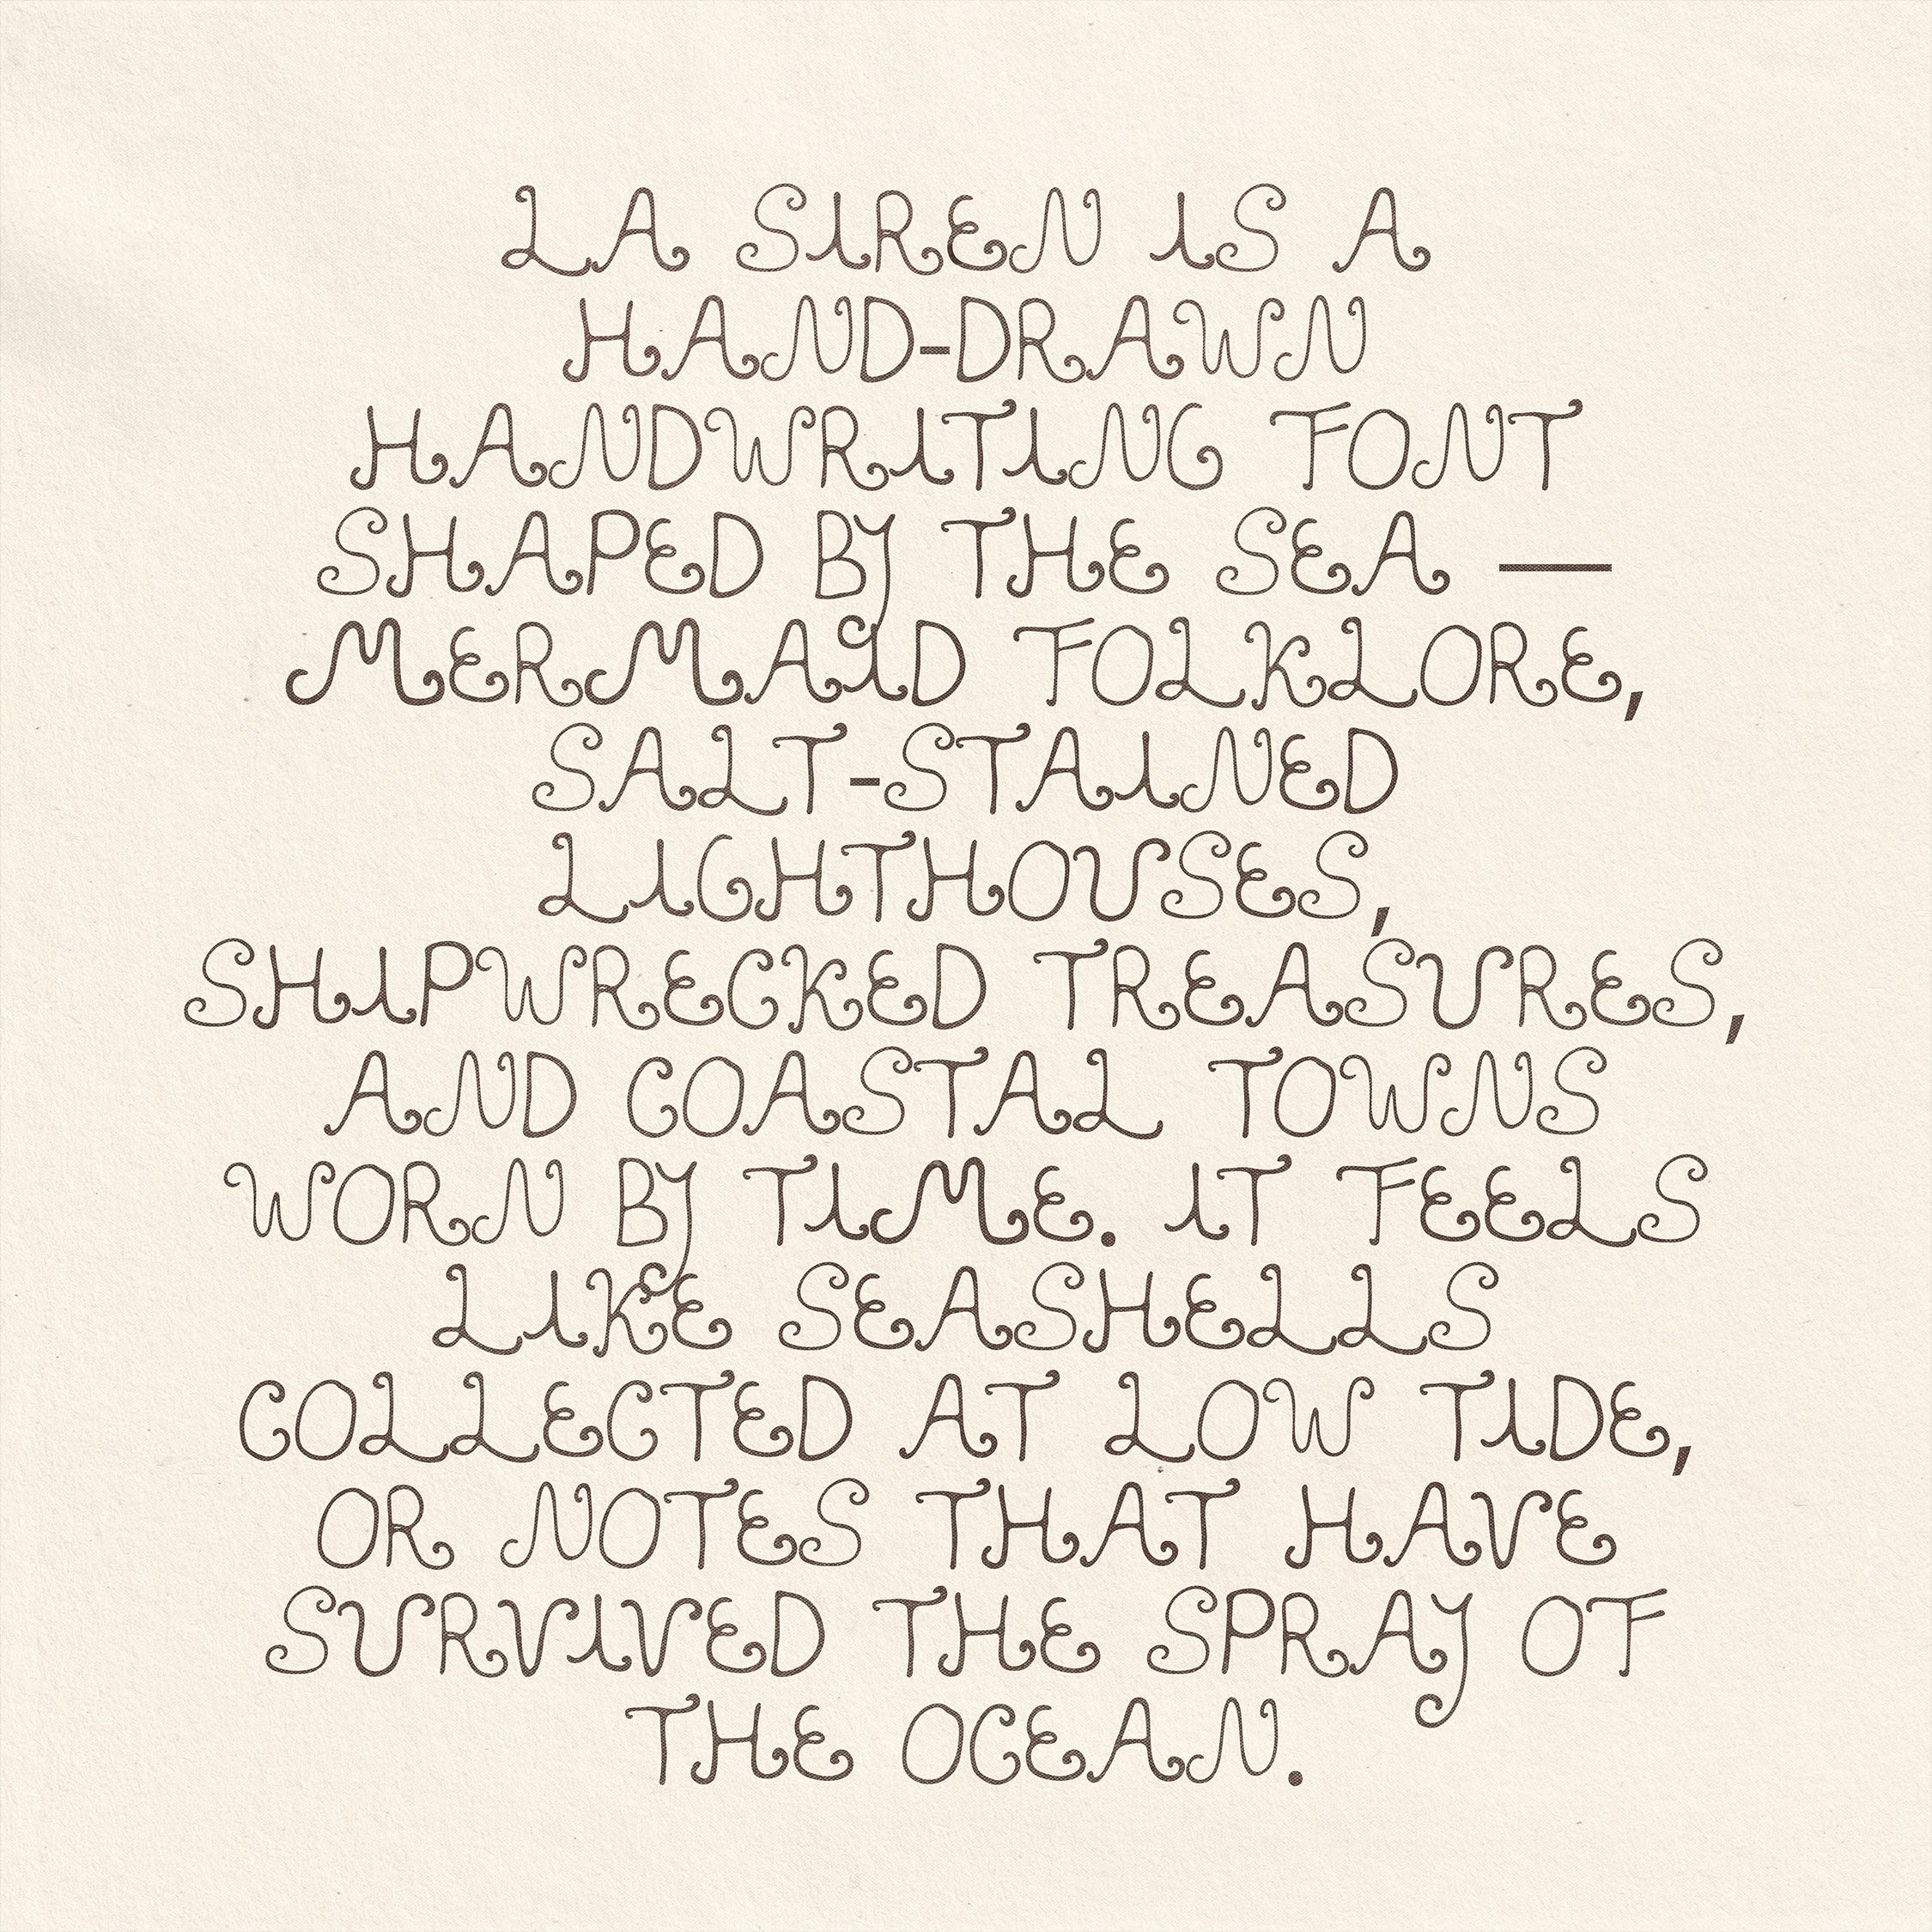 LA SIREN IS A
HAND-DRAWN
HANDWRITING FONT
SHAPED BY THE SEA —
MERMAID FOLKLORE,
SALT-STAINED
LIGHTHOUSES,
SHIPWRECKED TREASURES,
AND COASTAL TOWNS
WORN BY TIME. IT FEELS
LIKE SEASHELLS
COLLECTED AT LOW TIDE,
OR NOTES THAT HAVE
SURVIVED THE SPRAY OF
THE OCEAN.